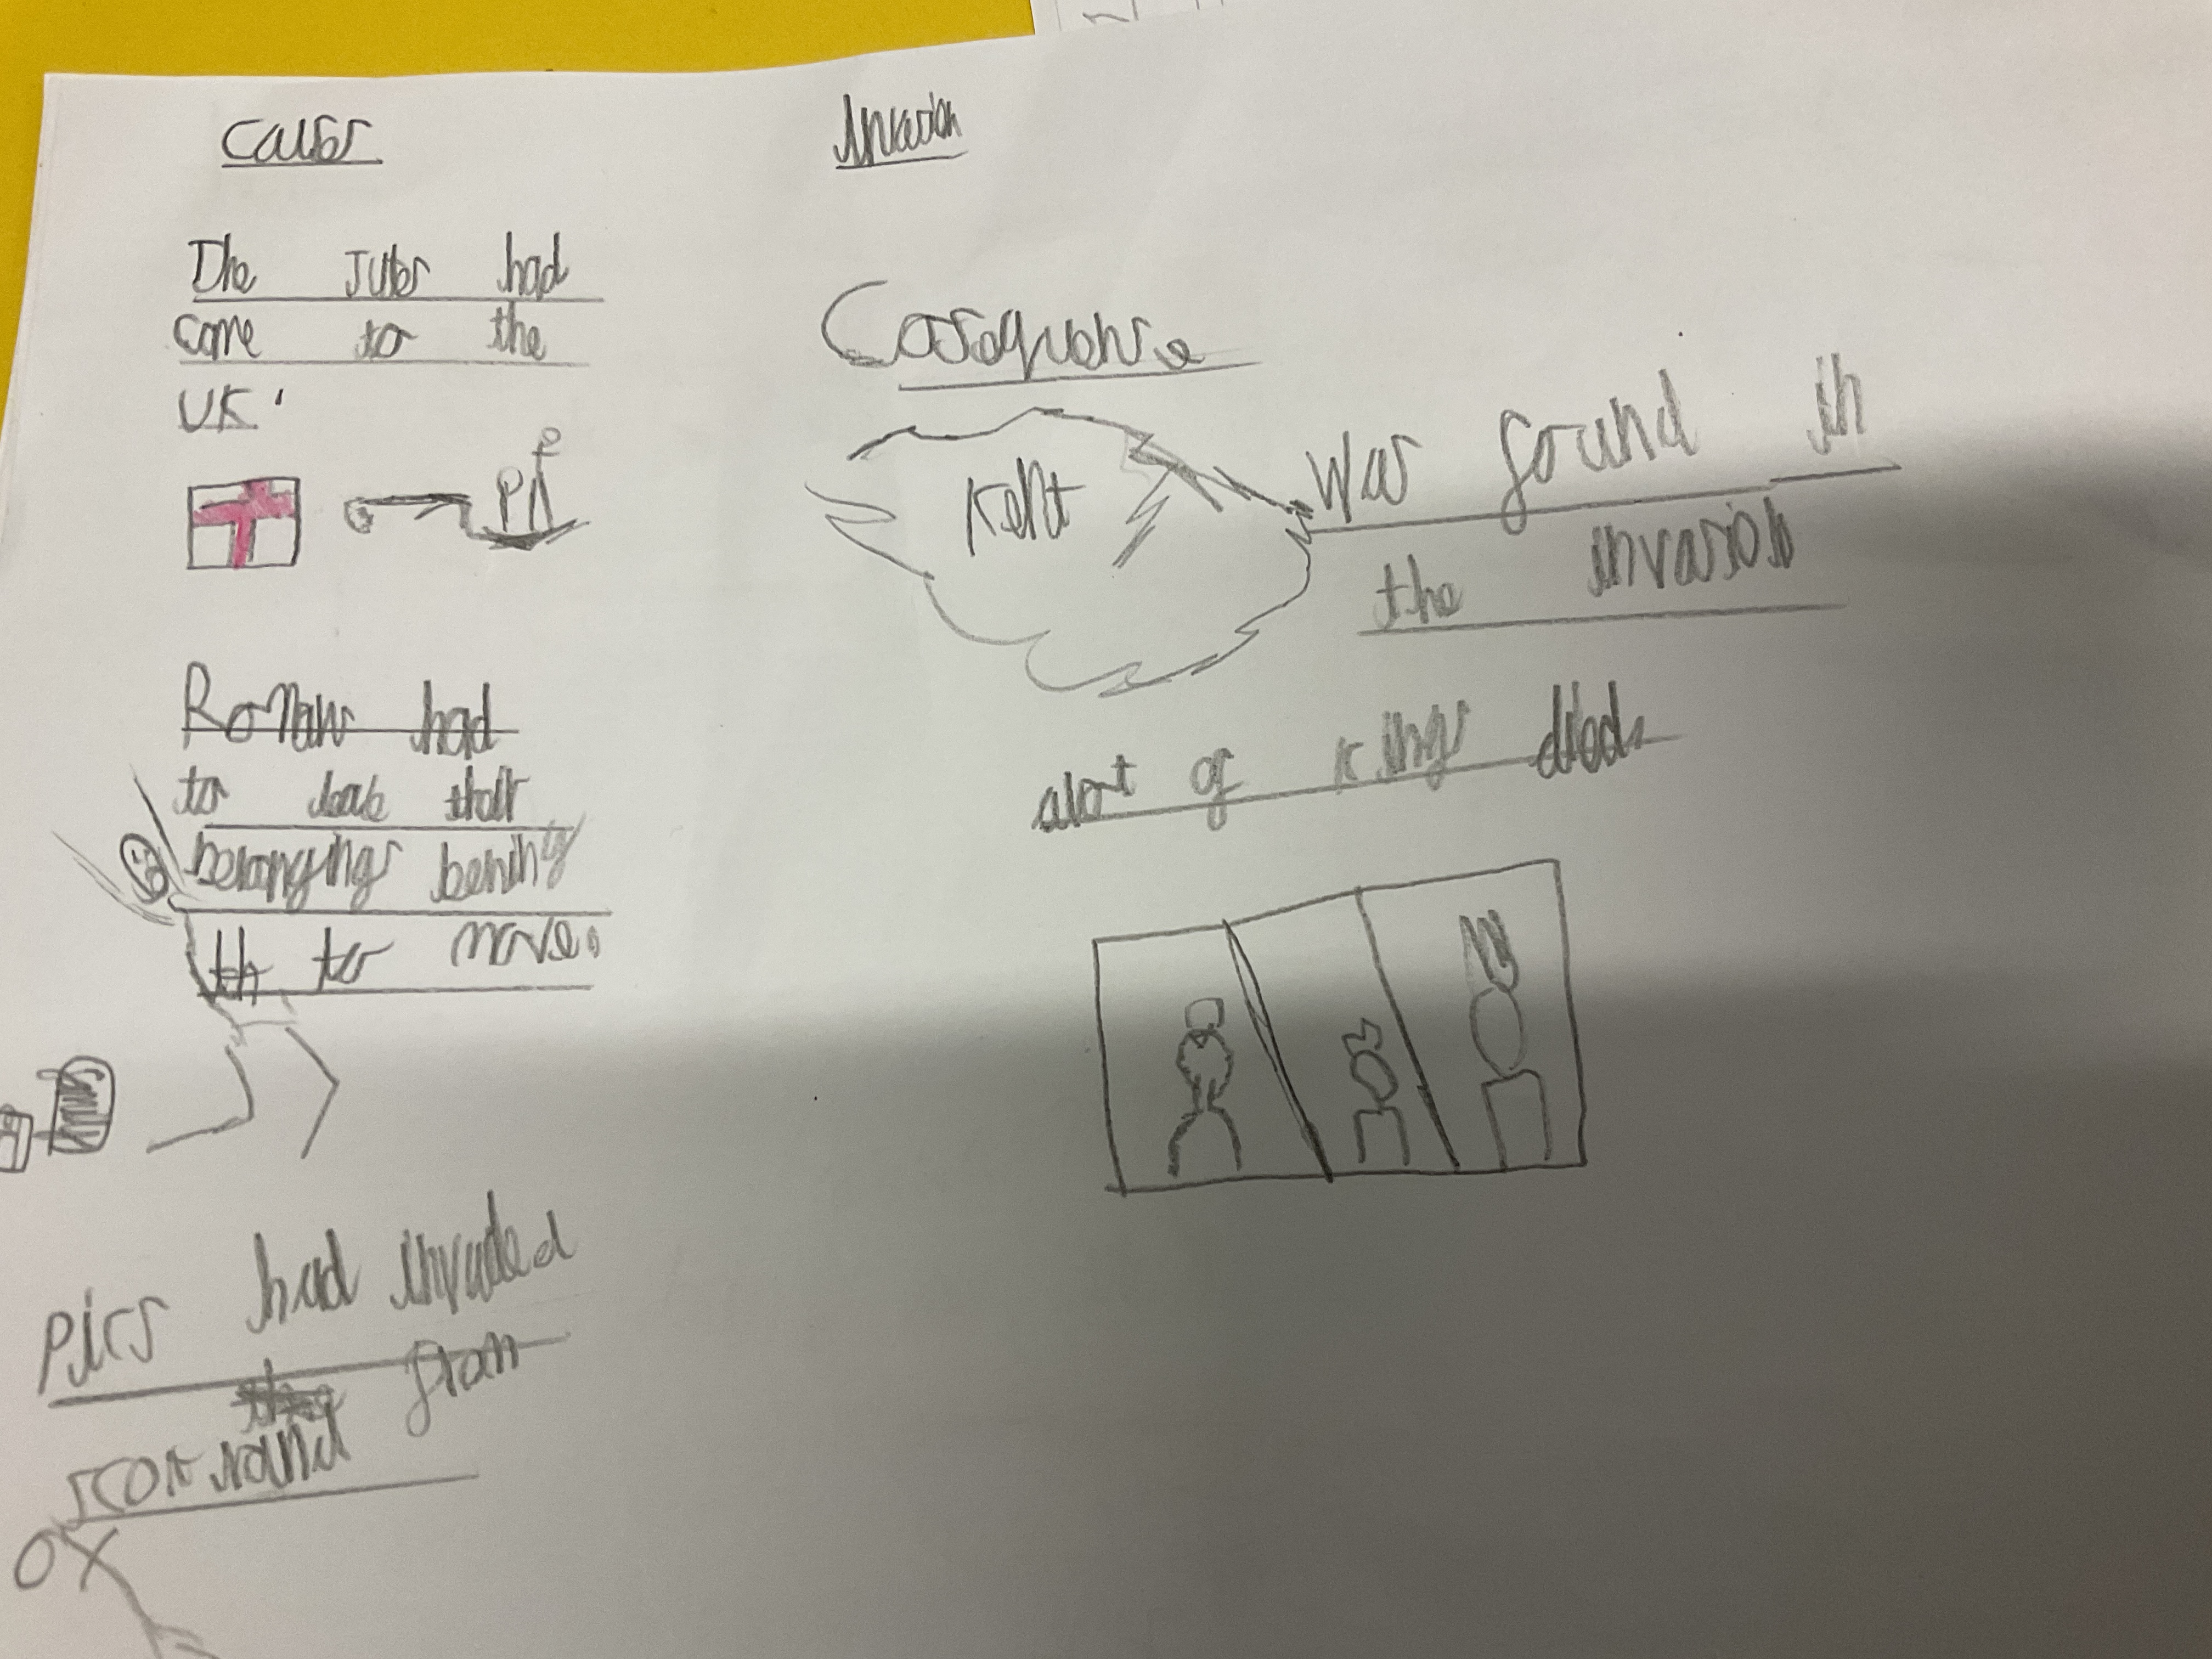 Causes
The Jutes had
come to the
UK.
Romans had
to leave their
belongings behind
to move.
Pics had invaded
from
scotland
Invasion
Cosequense
Kent
was found in
the invasion
alort of kings died